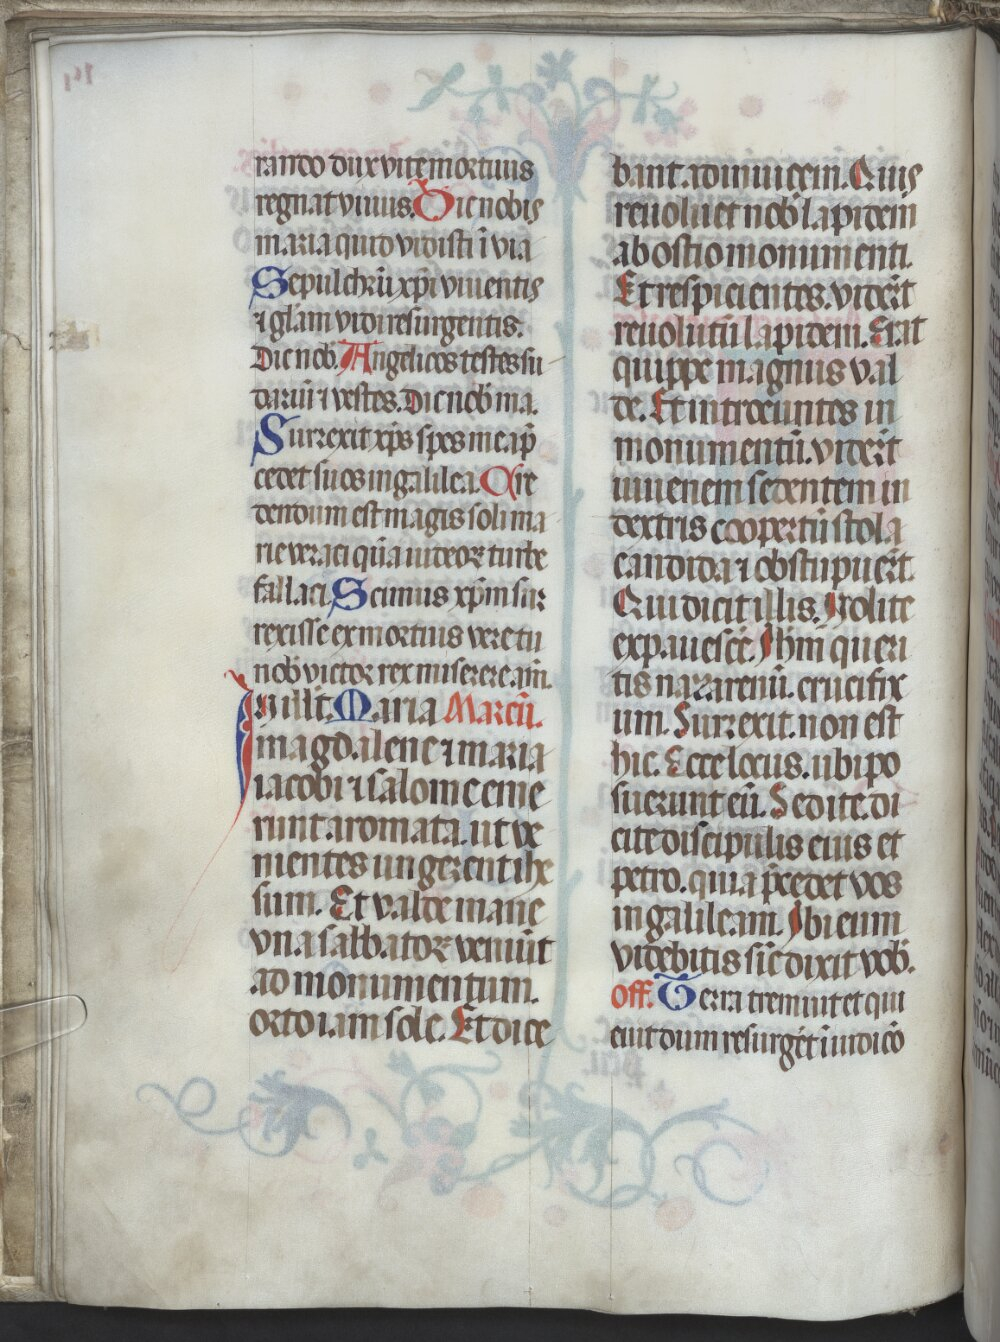 rando dux vite mortuus
regnat viuus. Dic nobis
maria quid vidisti ī via
Sepulchrū xp̄i viuentis
⁊ glām vidi resurgentis.
Dic nob̄. Angelicos testes su
dariū ⁊ vestes. Dic nob̄ ma.
Surrexit xp̄s spes mea p̄
cedet suos in galilea. Cre
dendum est magis soli ma
rie veraci quā iudeoꝝ turbe
fallaci. Scimus xp̄m sur
rexisse ex mortuis vere tu
nob̄ victor rex miserere am̄.
In illꝰ t. Maria Marcū.
magdalene ⁊ maria
iacobi ⁊ salome eme
runt aromata. ut ve
nientes ungerent ihe
sum. Et valde mane
vna sabbatoꝝ veniūt
ad monumentum.
orto iam sole. Et dice
bant adinuicem. Quis
reuoluet nob̄ lapidem
ab ostio monumenti.
Et respicientes. viderūt
reuolutū lapidem. Erat
quippe magnus val
de. Et introeuntes in
monumentū. viderūt
iuuenem sedentem in
dextris coopertū stola
candida ⁊ obstupuerūt.
Qui dicit illis. Nolite
expauescē. Ihm̄ queri
tis nazarenū. crucifix
um. Surrexit. non est
hic. Ecce locus. ubi po
suerunt eū. Sed ite. di
cite discipulis eius et
petro. quia p̄cedet vos
in galileam. Ibi eum
videbitis sic̄ dixit vob̄.
Off. Terra tremuit et qui
euit dum resurgēt ī iudicō